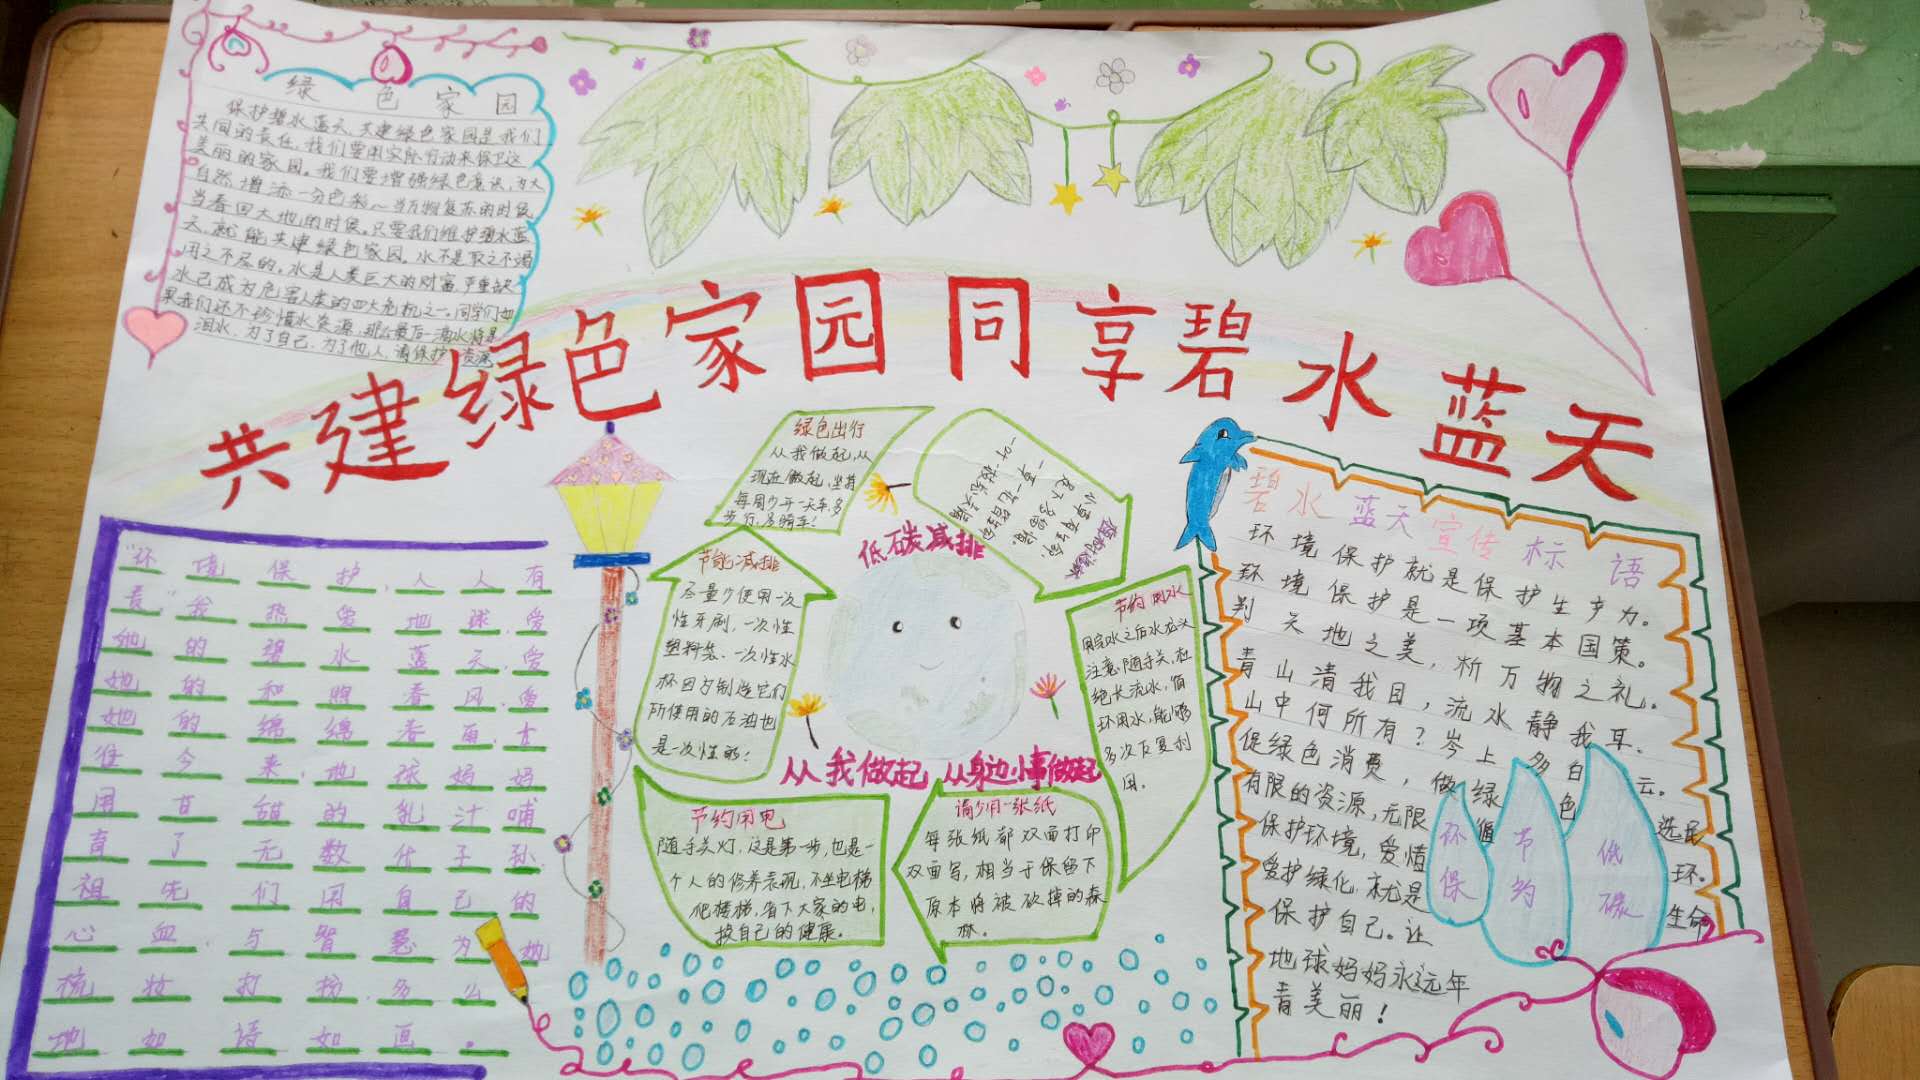 共建绿色家园同享碧水蓝天
绿色家园
保护碧水蓝天,共建绿色家园是我们
共同的责任,我们要用实际行动来保卫这
美丽的家园。我们要增强绿色意识,为大
自然增添一分色彩~当万物复苏的时候
当春回大地的时候。只要我们维护碧水蓝
天,就能共建绿色家园,水不是取之不竭
用之不尽的。水是人类巨大的财富,严重缺
水已成为危害人类的四大危机之一。同学们如
果我们还不珍惜水资源,那么最后一滴水将是
泪水,为了自己,为了他人,请保护资源
“环境保护,人人有
责”我热爱地球,爱
她的碧水蓝天,爱
她的和煦春风,爱
她的绵绵春雨,古
往今来,地球妈妈
用甘甜的乳汁哺
育了无数代子孙,
祖先们用自己的
心血,与智慧为她
梳妆打扮,多么
地如诗如画。
绿色出行
从我做起,从
现在做起,坚持
每周少开一天车,多
步行,多骑车!
小草有生命,
足下多留情。
一草一花皆生命
一叶一枝总关情
节能减排
尽量少使用一次
性牙刷,一次性
塑料袋、一次性水
杯因为制造它们
所使用的石油也
是一次性的!
低碳减排
从我做起 从身边小事做起
节约用水
用完水之后水龙头
注意随手关,杜
绝长流水,循
环用水,能够
多次反复利
用。
节约用电
随手关灯,这是第一步,也是一
个人的修养表现,不坐电梯
爬楼梯,省下大家的电,
换自己的健康。
请少用一张纸
每张纸都双面打印
双面写,相当于保留下
原本将被砍掉的森
林。
碧水蓝天宣传标语
环境保护就是保护生产力。
环境保护是一项基本国策。
判天地之美,析万物之礼。
青山清我目,流水静我耳。
山中何所有?岑上多白云。
促绿色消费,做绿色选民
有限的资源,无限循环。
保护环境,爱惜生命
爱护绿化,就是
保护自己。让
地球妈妈永远年
青美丽!
环保
节约
低碳